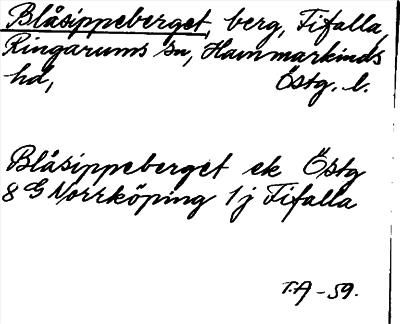 Blåsippeberget, berg, Fifalla,
Ringarums sn, Hammarkinds
hd, Östg. l.
Blåsippeberget ek Östg
8 G Norrköping 1 j Fifalla
T.A -59.